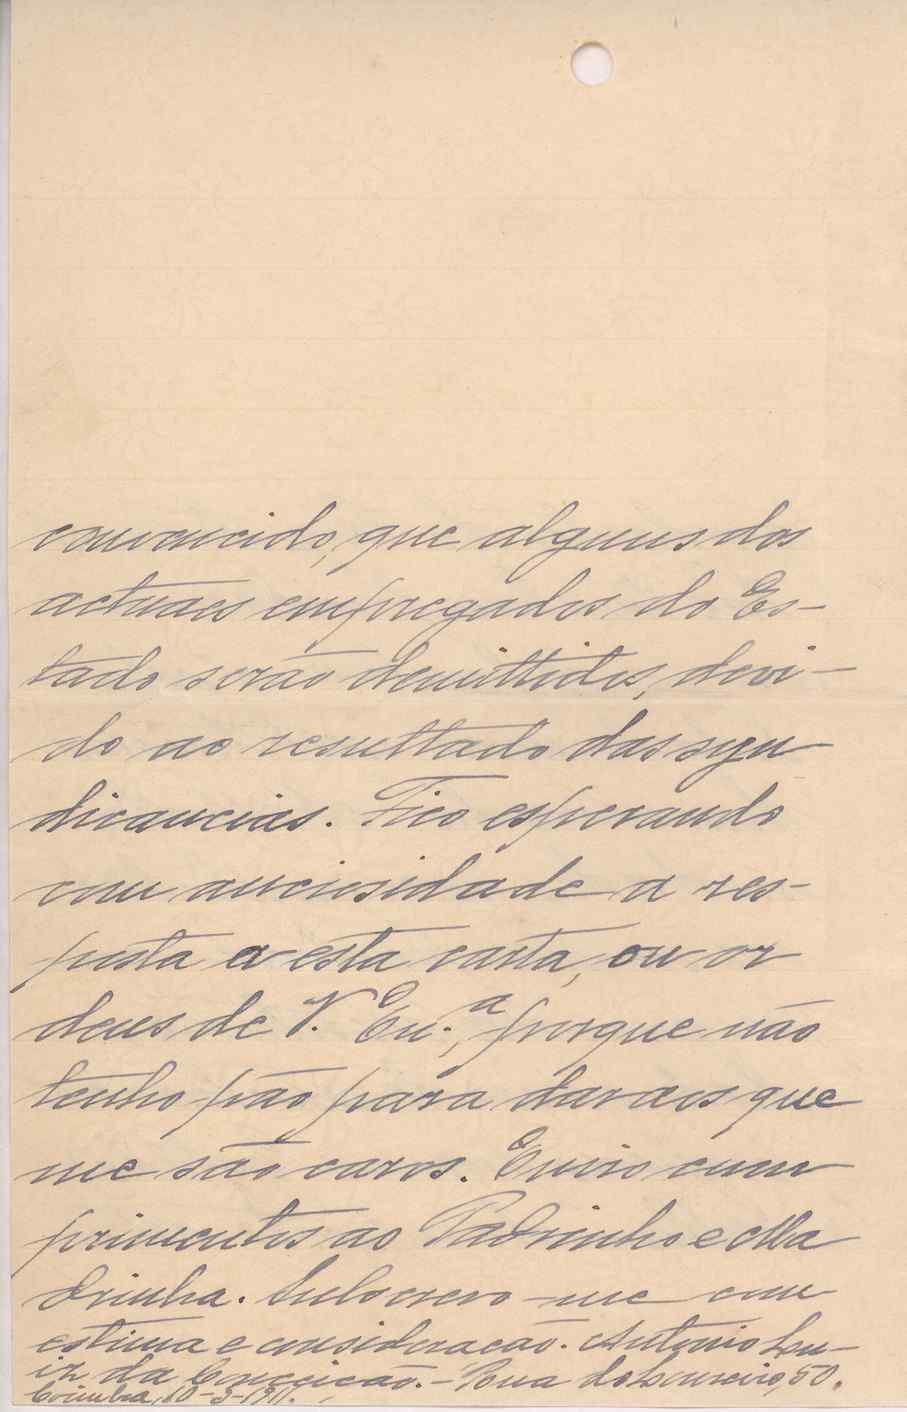 convencido, que alguns dos
actuaes empregados do Es-
tado serão demittidos, devi-
do ao resultado das syn
dicancias. Fico esperando
com anciosidade a res-
posta a esta carta, ou or
dens de V. Ex.ª, porque não
tenho pão para dar aos que
me são caros. Envio cum
primentos ao Padrinho e Ma
drinha. Subscrevo-me com
estima e consideração. Antonio Lu-
iz da Conceição. - Rua do Loureiro, 50.
Coimbra, 10-3-1911.